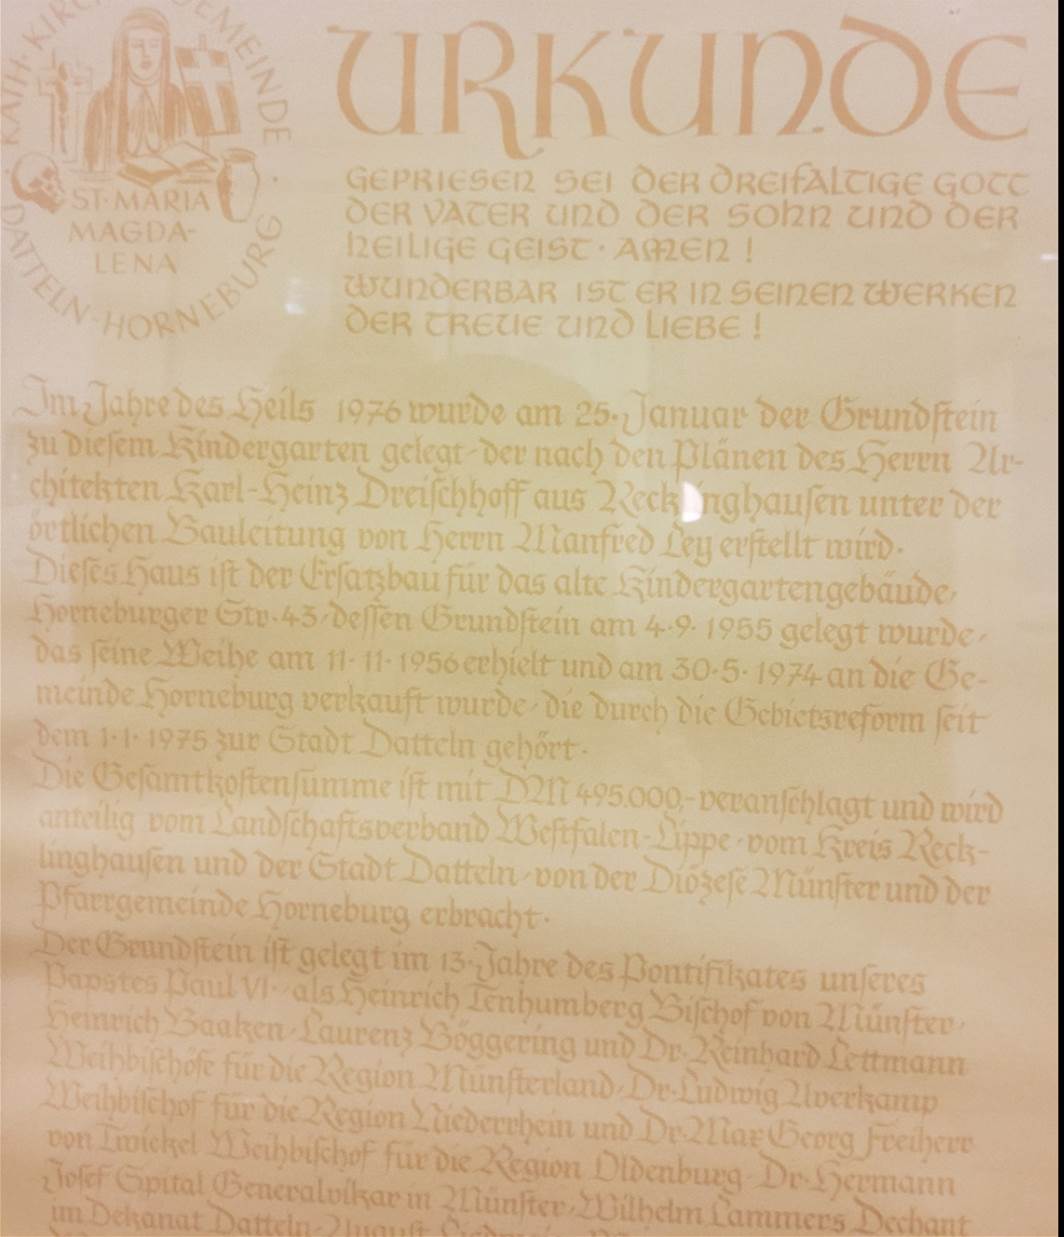 KATH. KIRCHENGEMEINDE
ST. MARIA
MAGDA-
LENA
DATTELN-HORNEBURG
URKUNDE
GEPRIESEN SEI DER DREIFALTIGE GOTT
DER VATER UND DER SOHN UND DER
HEILIGE GEIST · AMEN !
WUNDERBAR IST ER IN SEINEN WERKEN
DER TREUE UND LIEBE !
Im Jahre des Heils 1976 wurde am 25. Januar der Grundſtein
zu dieſem Kindergarten gelegt, der nach den Plänen des Herrn Ar-
chitekten Karl-Heinz Dreiſchhoff aus Recklinghauſen unter der
örtlichen Bauleitung von Herrn Manfred Ley erſtellt wird.
Dieſes Haus iſt der Erſatzbau für das alte Kindergartengebäude,
Horneburger Str. 43, deſſen Grundſtein am 4. 9. 1955 gelegt wurde,
das ſeine Weihe am 11. 11. 1956 erhielt und am 30. 5. 1974 an die Ge-
meinde Horneburg verkauft wurde, die durch die Gebietsreform ſeit
dem 1. 1. 1975 zur Stadt Datteln gehört.
Die Geſamtkoſtenſumme iſt mit DM 495.000,- veranſchlagt und wird
anteilig vom Landſchaftsverband Weſtfalen-Lippe, vom Kreis Reck-
linghauſen und der Stadt Datteln, von der Diözeſe Münſter und der
Pfarrgemeinde Horneburg erbracht.
Der Grundſtein iſt gelegt im 13. Jahre des Pontifikates unſeres
Papstes Paul VI., als Heinrich Tenhumberg Biſchof von Münſter,
Heinrich Baaken, Laurenz Böggering und Dr. Reinhard Lettmann
Weihbiſchöfe für die Region Münſterland, Dr. Ludwig Averkamp
Weihbiſchof für die Region Niederrhein und Dr. Max Georg Freiherr
von Twickel Weihbiſchof für die Region Oldenburg, Dr. Hermann
Joſef Spital Generalvikar in Münſter, Wilhelm Lammers Dechant
im Dekanat Datteln, Auguſt